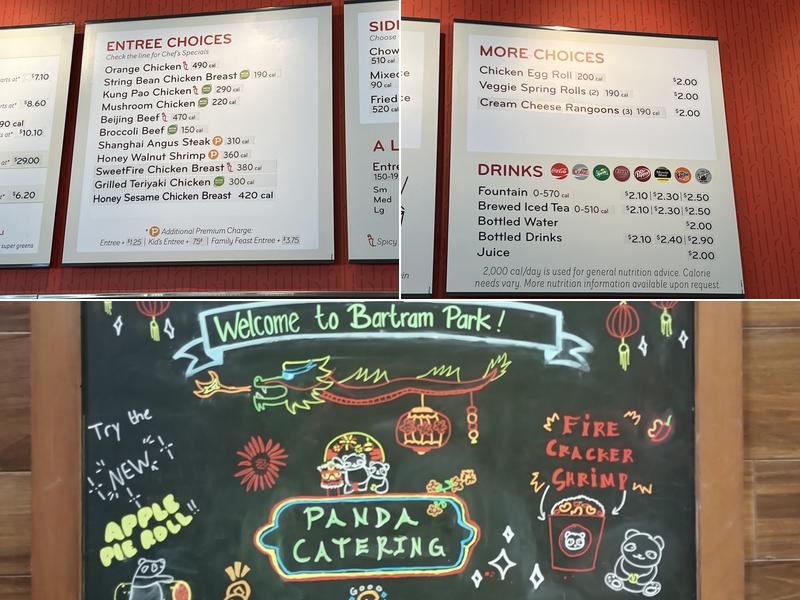 arts at* $7.10
arts at* $8.60
90 cal
$10.10
at* $29.00
at* $6.20
super greens
ENTREE CHOICES
Check the line for Chef's Specials
Orange Chicken 490 cal
String Bean Chicken Breast 190 cal
Kung Pao Chicken 290 cal
Mushroom Chicken 220 cal
Beijing Beef 470 cal
Broccoli Beef 150 cal
Shanghai Angus Steak P 310 cal
Honey Walnut Shrimp P 360 cal
SweetFire Chicken Breast 380 cal
Grilled Teriyaki Chicken 300 cal
Honey Sesame Chicken Breast 420 cal
* P Additional Premium Charge:
Entree + $1.25 | Kid's Entree + 75¢ | Family Feast Entree + $3.75
SIDE
Choose
Chow
510 cal
Mixed
90 cal
Fried
520 cal
A L
Entre
150-19
Sm
Med
Lg
Spicy
MORE CHOICES
Chicken Egg Roll 200 cal $2.00
Veggie Spring Rolls (2) 190 cal $2.00
Cream Cheese Rangoons (3) 190 cal $2.00
DRINKS
Fountain 0-570 cal $2.10 | $2.30 | $2.50
Brewed Iced Tea 0-510 cal $2.10 | $2.30 | $2.50
Bottled Water $2.00
Bottled Drinks $2.10 $2.40 | $2.90
Juice $2.00
2,000 cal/day is used for general nutrition advice. Calorie
needs vary. More nutrition information available upon request.
Welcome to Bartram Park!
Try the
NEW
APPLE
PIE ROLL!!
PANDA
CATERING
FIRE
CRACKER
SHRIMP